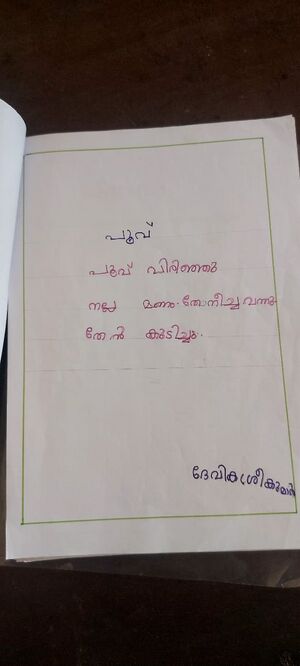 പൂവ്
പൂവ് വിരിഞ്ഞു
നല്ല മണം. തേനീച്ച വന്നു
തേൻ കുടിച്ചു.
ദേവിക ശ്രീകുമാർ